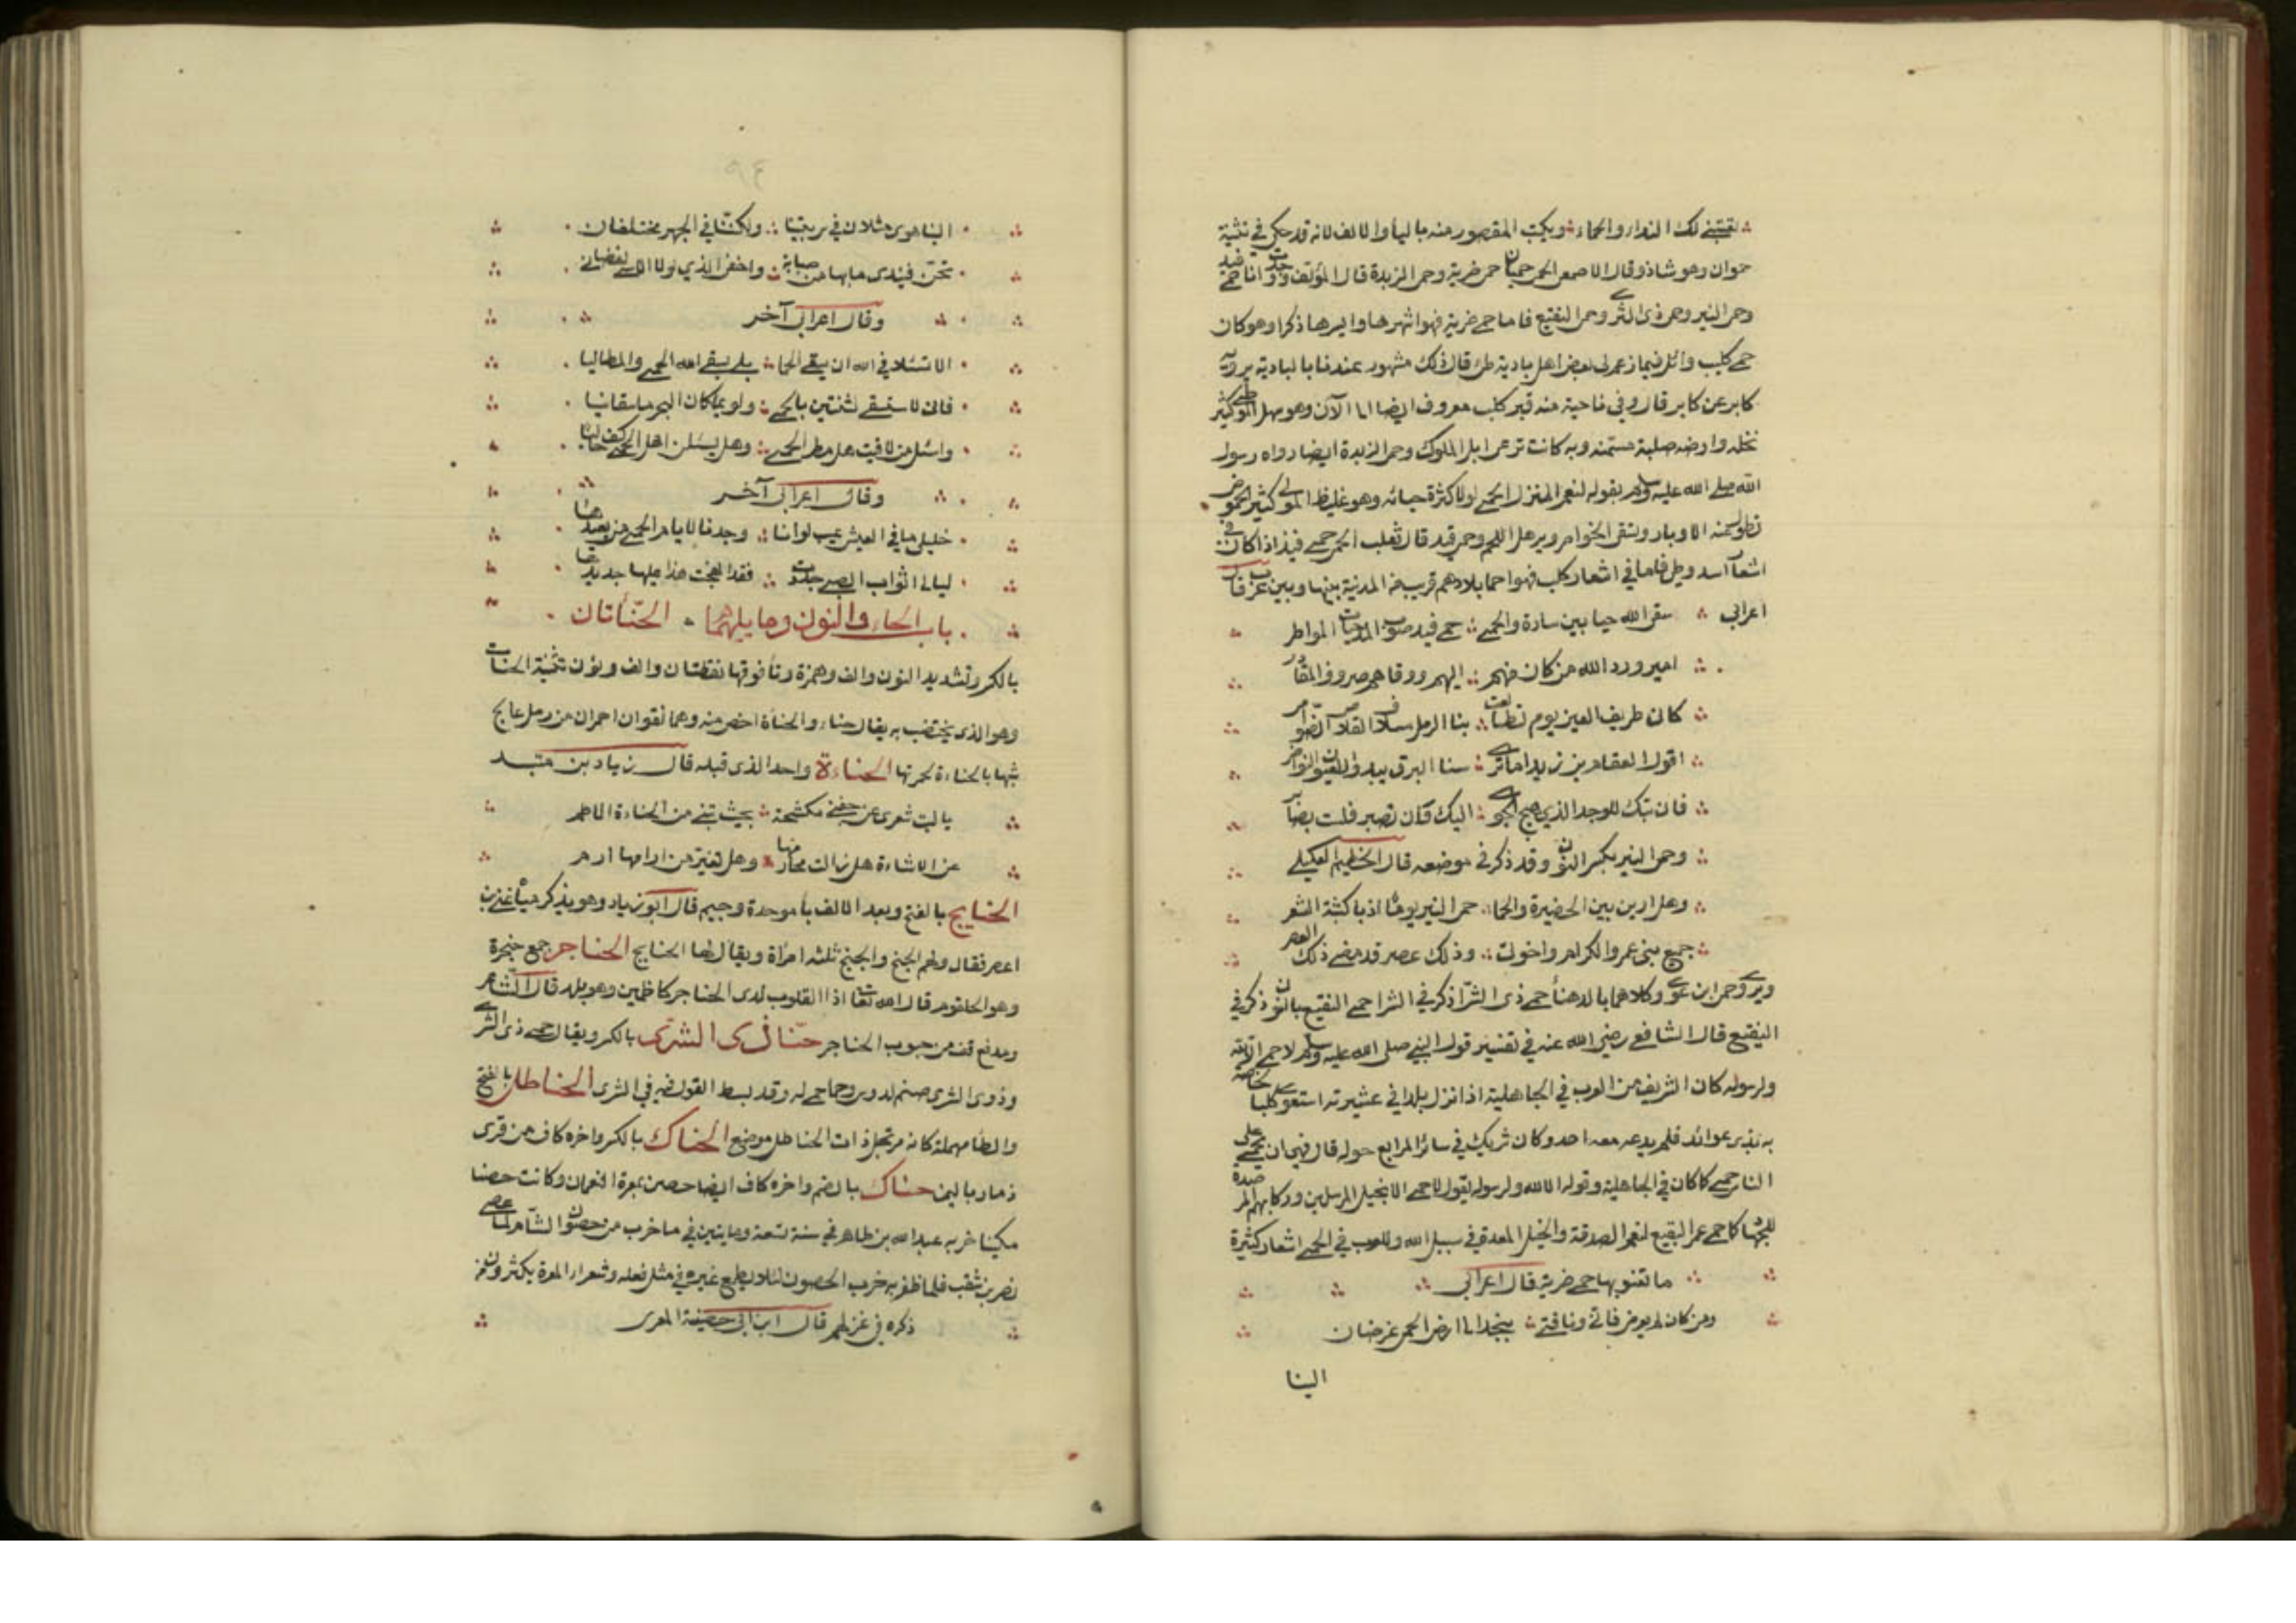 لقتني لك النداء والحماء ويكتب المقصور منه باليا والالف لانه قد حكي في تثنية
حموان وهو شاذ وقال الاصمعي الحمى حميان حمى ضرية وحمى الربذة قال المؤلف ووجدت انا حمى فيد
وحمى النير وحمى ذى الشرى وحمى النقيع فاما حمى ضرية فهو اشهرها وايسرها ذكرا وهو كان
حمى كليب وائل فيما زعم لى بعض اهل بادية طى قال ذلك مشهور عندنا بالبادية يرويه
كابر عن كابر قال وفي ناحية منه قبر كليب معروف ايضا الى الآن وهو سهل الموطى كثير
نخله وارضه صلبة مستمنه وبه كانت ترعى ابل الملوك وحمى الربذة ايضا رواه رسول
الله صلى الله عليه وسلم بقوله لنعم المنزل الحمى لولا كثرة حياته وهو غليظ الموطى كثير الحموض
تطول عنه الاوبار وتفتق الخواصر ويرهل اللحم وحمى فيد قال ثعلب الحمى حمى فيد اذا كان في
اشعار اسد وطى فاما في اشعار كلب فهو احما بلادهم قريب من المدينة بينها وبين عرفات قال
اعرابي سقى الله حيا بين سارة والحمى حمى فيد صوب المدجنات المواطر
امير ورد الله من كان منهم اليهم ووقاهم صروف المقادر
كان طريف العين يوم تطالعت بنا الرمل سلاف القلاص الضوامر
اقول لعقام بن زيد اما ترى سنا البرق يبدو للعيون النواظر
فان تبك للوجد الذي هيج الجوى اليك وان تصبر فلست بصابر
وحمى النير بكسر النون وقد ذكر في موضعه قال الخطيم العكيلي
وهل ارين بين الحضيرة والحمى حمى النير يوما اذ باكثبة الشعر
جميع بني عمرو الكرام واخوتي وذلك عصر قد مضى ذلك العصر
ويروى حمى ابن عوى وكلاهما بالدهنا حمى ذى الشرا ذكر في الشرا حمى النقيع بالنون ذكر في
النقيع قال الشافعي رضي الله عنه في تفسير قول النبي صلى الله عليه وسلم لا حمى الا لله
ولرسوله كان الشريف من العرب في الجاهلية اذا نزل بلدا في عشيرته استعوى كلبا لخاصة
به مدى عوائه فلم يرعه معه احد وكان شريك في سائر المرابع حوله قال فنهى ان يحمى على
الناس حمى كما كان في الجاهلية وقوله الا لله ولرسوله يقول لا حمى الا لخيل المرسلين وركابهم المرصدة
للجهاد كما حمى عمر النقيع لنعم الصدقة والخيل المعدة في سبيل الله وللعرب في الحمى اشعار كثيرة
ما تعنو بها حمى ضرية قال اعرابي
ومن كان لم يغرض فاني وناقتي بنجد الى ارض الحمى غرضان
الينا
الينا هوى مثلان في سر بيننا ولكننا في الجهر مختلفان
تحن فتبدى ما بها من صبابة واخفى الذي لولا الاسى لقضاني
وقال اعرابي آخر
الا تسئلا في الله ان يسقي الحما بلى يسقي الله الحمى والمطاليا
فاني لاستسقي لثنتين بالحمى ولو يملكان البحر ما سقانيا
واسئل من لاقيت هل مطر الحمى وهل يسئلن اهل الحمى كيف حاليا
وقال اعرابي آخر
خليلي ما في العيش عيب لو اننا وجدنا لايام الحمى من يعيدها
ليالي اثواب الصبى جدد لنا فقد انهجت هذا عليها جديدها
باب الحاء والنون وما يليهما الحنأتان
بالكسر وتشديد النون والف وهمزة وتا فوقها نقطتان والف ونون تثنية الحنات
وهو الذي يختضب به يقال حناء والحنأة اخص منه وهما نقوان احمران من رمل عالج
شبها بالحناءة لحمرتها الحناءة واحد الذي قبله قال زياد بن منقذ
يا ليت شعري عن جنبي مكشحة بحيث تبنى من الحناءة الاطم
عن الاشاءة هل زالت مخارمها وهل تغير من ارامها ارم
الحنابج بالفتح وبعد الالف با موحدة وجيم قال ابو زياد وهو يذكر مياه غنى بن
اعصر فقال ولهم الحنبج والحنبج ثلثة امراة ويقال لها الحنابج الحناجر جمع حنجرة
وهو الحلقوم قال الله تعالى اذ القلوب لدى الحناجر كاظمين وهو بلد قال الشاعر
ومدفع قف من جنوب الحناجر حنا ذى الشرى بالكسر ويقال حمى ذى الشرى
وذوى الشرى صنم لدوس وحماه حمى له وقد بسط القول فيه في الشرى الحناظل بالفتح
والظا مهملة كانه مرتجل ذات الحناظل موضع الحناك بالكسر واخره كاف من قرى
ذمار باليمن حناك بالضم واخره كاف ايضا حصن بمعرة النعمان وكانت حصنا
مكينا خربه عبد الله بن طاهر في سنة تسعة ومايتين في ما خرب من حصون الشام لما عصى
نصر بن شبث فلما ظفر به خرب الحصون لئلا يطمع غيره في مثل فعله وشعراء المعرة يكثرون من
ذكره في غزلهم قال ابن ابي حصينة المعرى